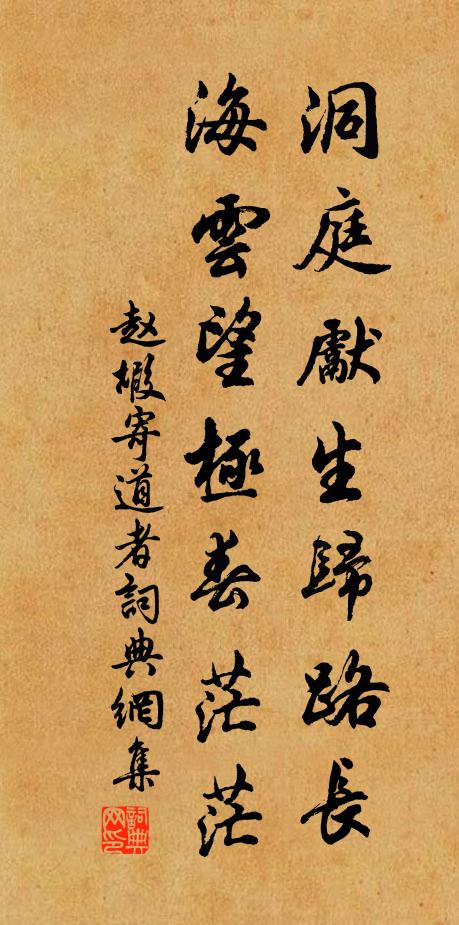 洞庭獻生歸路長
海雲望極春茫茫
赵嘏寄道者詞典網集
詞典网印